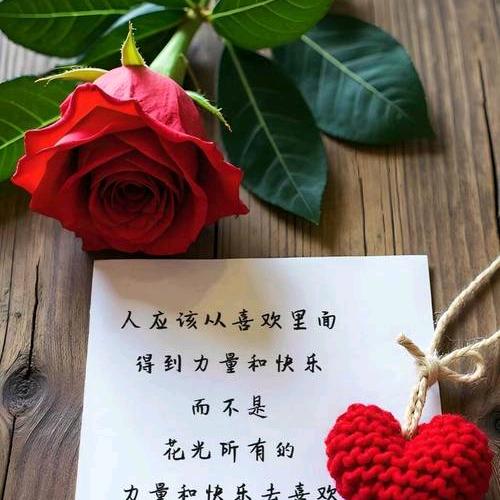 人应该从喜欢里面
得到力量和快乐
而不是
花光所有的
力量和快乐去喜欢